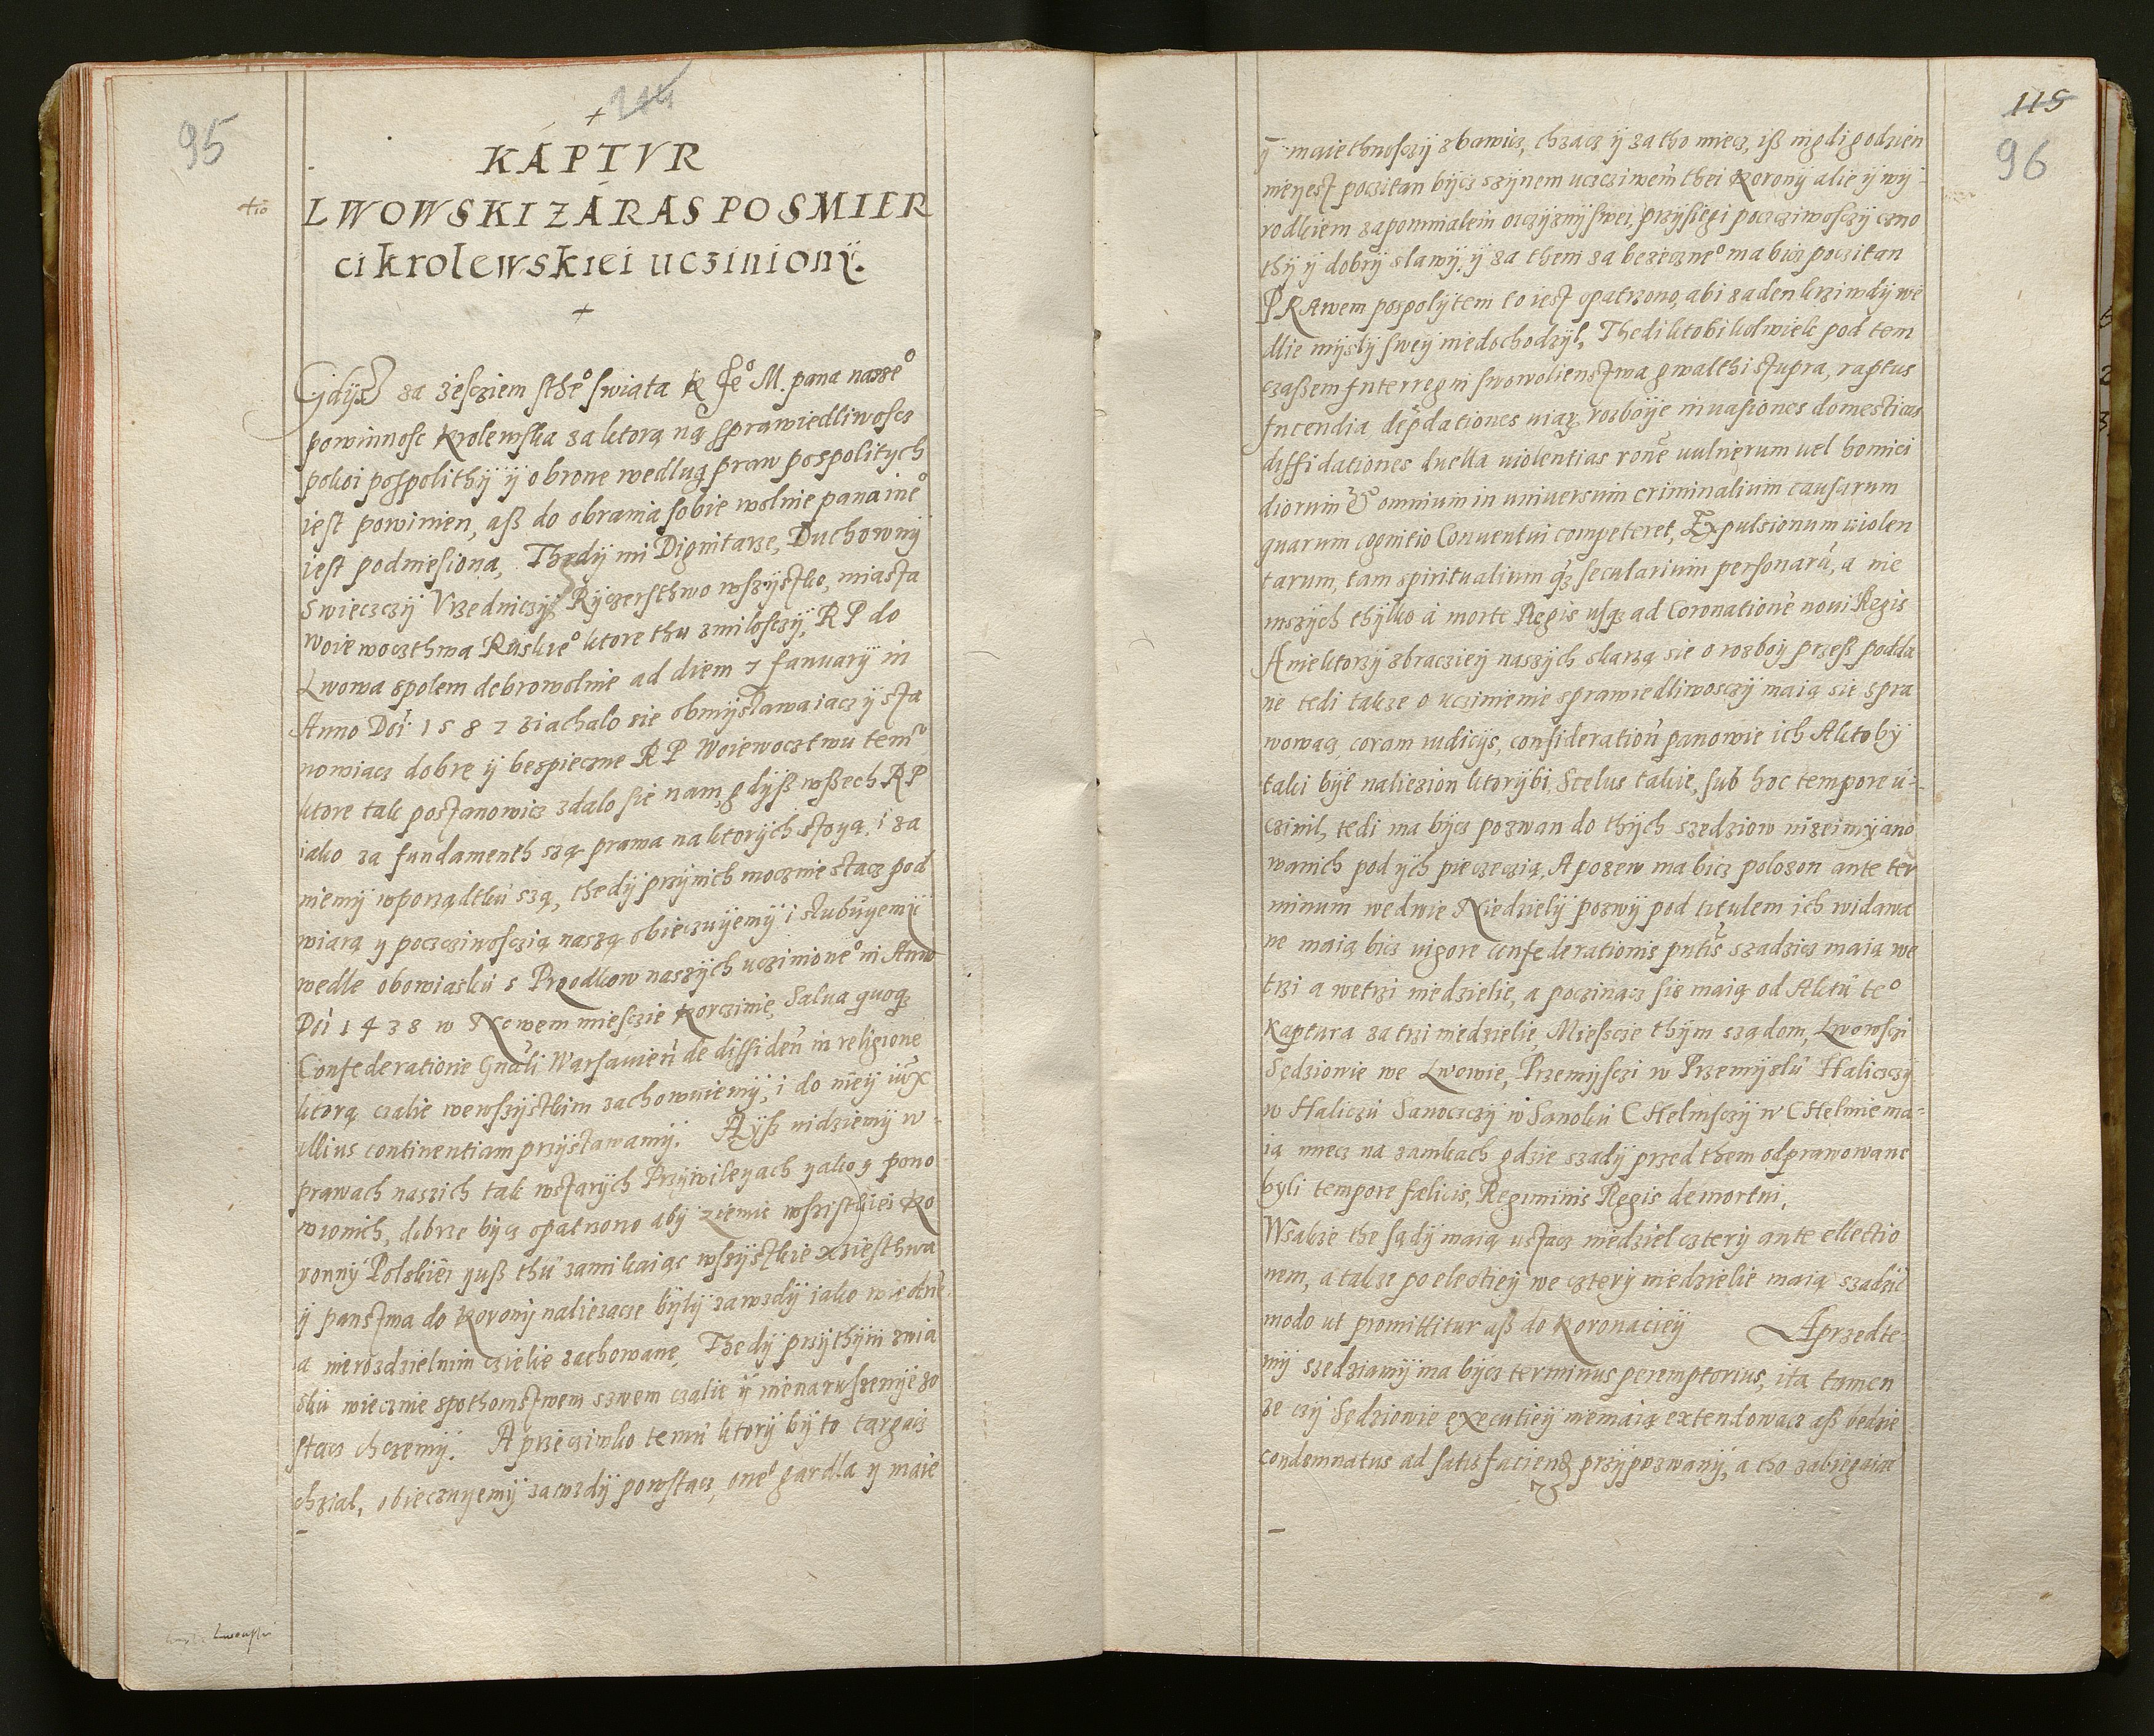 95
114
+
KÁPTVR
LWOWSKI ZÁRAS PO SMIER
ci krolewskiei ucziniony.
+
Gdysz za ześcziem sthe° swiata K Je° M. pana nasze°
powinnosc Krolewska za ktorą ną sprawiedliwoscz
pokoi pospolithÿ ÿ obronę wedlug praw pospolitych
iest powinien, asz do obrania sobie wolnie pana ine°
iest podniesiona, Thedÿ mi Dignitarze, Duchownÿ
Swieczczÿ Vrzedniczÿ Rÿczersthwo wszÿstko, miasta
woiewoczthwa Ruskie° ktore thu zmilosczÿ, R P do
Lwowa spolem dobrowolnie ad diem 7 Januarÿ in
Anno Dńi 1587 ziachalo sie obmÿslawaiacz ÿ sta
nowiacz dobre ÿ bespieczne R P Woiewocztwu temu
ktore tak postanowicz zdalo sie nam, gdÿsz wszech R P
iako za fundamenth szą prawa na ktorÿch stoyą, i za
niemÿ wporządku szą, thedÿ przÿnich mocznie stacz pod
wiarą y poczciwosczią naszą obieczuÿemÿ i slubuÿemÿ
wedle obowiasku s Przodkow naszÿch uczinione° in Anno
Dńi 1438 w Nowem miesczie Korczinie, Salua quoqz
Confederatione Gnali Warsauień de dissideń in religione
ktorą czalie wewszÿstkim zachowuiemÿ, i do nieÿ iux
illius continentiam przÿstawamÿ. Aÿsz uidziemÿ w-
prawach naszich tak wstarÿch Przÿwileyach yako y pono
wionich, dobrze bÿcz opatrzono abÿ ziemie wszistkiei Ko
ronnÿ Polskiei yusz thu zamikaiąc wszÿstkie xziesthwa
ÿ panstwa do Koronÿ naliezacze bÿlÿ zawzdÿ iako wiednem
a nierozdzielnim czielie zachowane, Thedÿ przÿthÿm zwia
sku wiecznie spothomstwem szwem czalie ÿ nienaruszenÿe zo
stacz chczemÿ. A przeciwko temu ktorÿ bÿ to targacz
chzial, obieczuyemÿ zawzdÿ powstacz, one° gardla y maie
115
96
ÿ maiethnosczÿ zbawicz, chzacz ÿ zatho miecz, isz nigdi godzien
nieÿest poczitan bÿcz szÿnem ucscziwem thei Koronÿ alie ÿ wÿ-
rodkiem zapomnialem oiczÿznÿ swei, przÿsiegi poczciwosczÿ czno
thÿ ÿ dobrÿ slawÿ, ÿ za them za bezeczne° ma bicz poczitan
PRAwem pospolÿtem to iest opatrzono, abi zaden krziwdÿ we
dlie mÿslÿ swey niedochodzÿl, Thedi ktobikolwiek pod tem
czasem Interregni swowolienstwa gwalthi stupra, raptus
Incendia depdationes uiarz, rozboÿe inuasiones domesticas
diffidationes duella uiolentias rone uulnerum uel homici
diorum & omnium in universum criminalium causarum
quarum cognitio Conuentui competeret, Expulsionum uiolen
tarum, tam spiritualium qz secularium personarū, a nie
inszÿch thÿlko à morte Regis usqz ad Coronationē noui Regis
A niektorzÿ zbracziey naszÿch skarzą sie o rozboÿ przesz podda
ne tedi takze o uczinienie sprawiedliwosczÿ maią sie spra
wowacz coram iudicÿs, consideratioñ panowie ich Aktobÿ
taki bÿl naliezion ktorÿbi, Scelus takie, sub hoc tempore u-
czinil, tedi ma bÿcz pozwan do thÿch szedziow nizeimÿano
wanich pod ÿch pieczeczią, A pozew ma bicz polozon ante ter
minum wedwie Niedzielÿ pozwÿ pod titulem ich widawa
ne maią bicz uigore confederationis pntis szadzicz maią we
trzi a wetrzi niedzielie, a poczinacz sie maią od Aktu te°
Kaptura za trzi niedzielie, Miesscie thÿm sządom, Lwowsci
Sędziowie we Lwowie, Przemÿsczi w Przemÿslu Haliczczÿ
w Haliczu Sanoczczÿ w Sanoku CHelmsczÿ w CHelmie ma-
ią miecz na zamkach gdzie szadÿ przed them odprawowane
byli tempore fælicis, Regiminis Regis demortui,
Wsakze the sądÿ maią ustacz niedziel czterÿ ante electio
nem, a takze po electieÿ we czterÿ niedzielie maią szadzić
modo ut promittitur asz do Koronacieÿ A przedte-
mÿ szedziamÿ ma bÿcz terminus peremptorius, ita tamen
ze czÿ Sędziowie executieÿ niemaią extendowacz asz bedzie
condemnatus ad satisfaciend przÿpozwanÿ, a tho zabiegaiąc